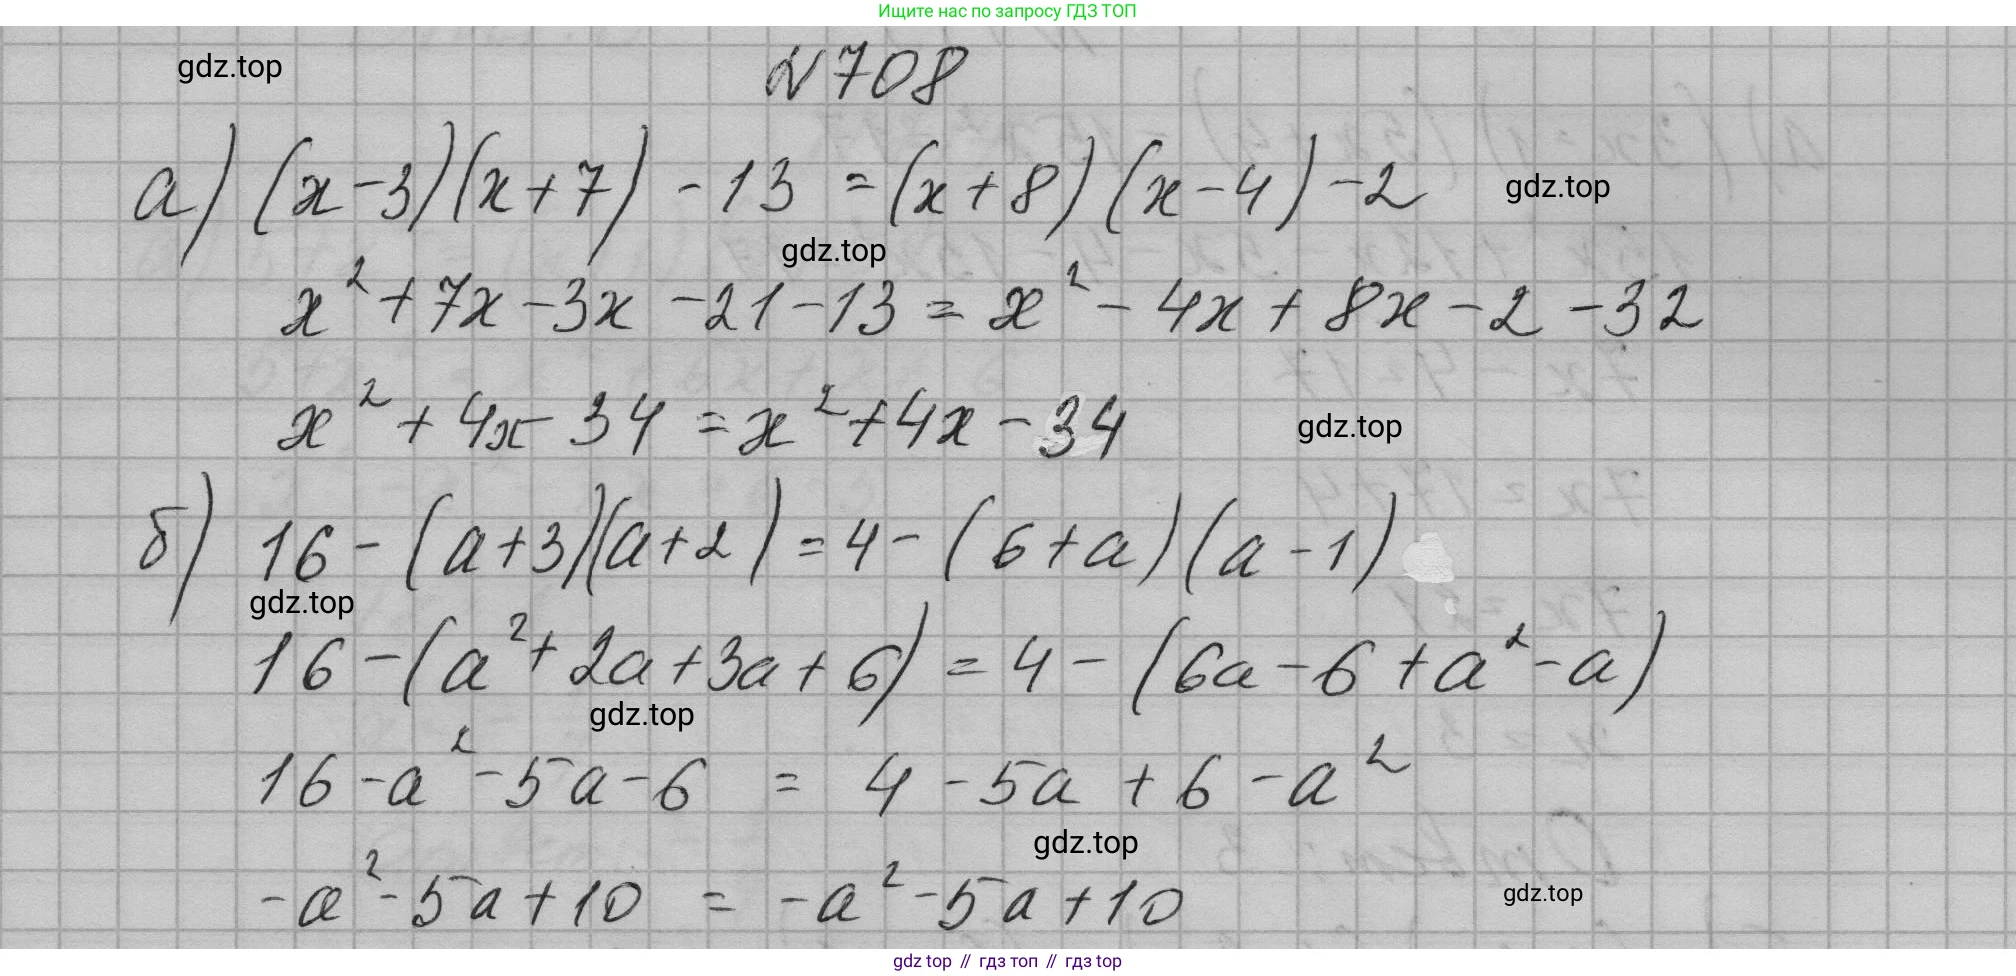 Ищите нас по запросу ГДЗ ТОП
gdz.top
№708
а) (x-3)(x+7) - 13 = (x+8)(x-4) - 2
gdz.top
gdz.top
x² + 7x - 3x - 21 - 13 = x² - 4x + 8x - 2 - 32
x² + 4x - 34 = x² + 4x - 34
gdz.top
б) 16 - (a+3)(a+2) = 4 - (6+a)(a-1)
gdz.top
16 - (a² + 2a + 3a + 6) = 4 - (6a - 6 + a² - a)
gdz.top
16 - a² - 5a - 6 = 4 - 5a + 6 - a²
gdz.top
-a² - 5a + 10 = -a² - 5a + 10
gdz.top
gdz top // гдз топ // гдз top